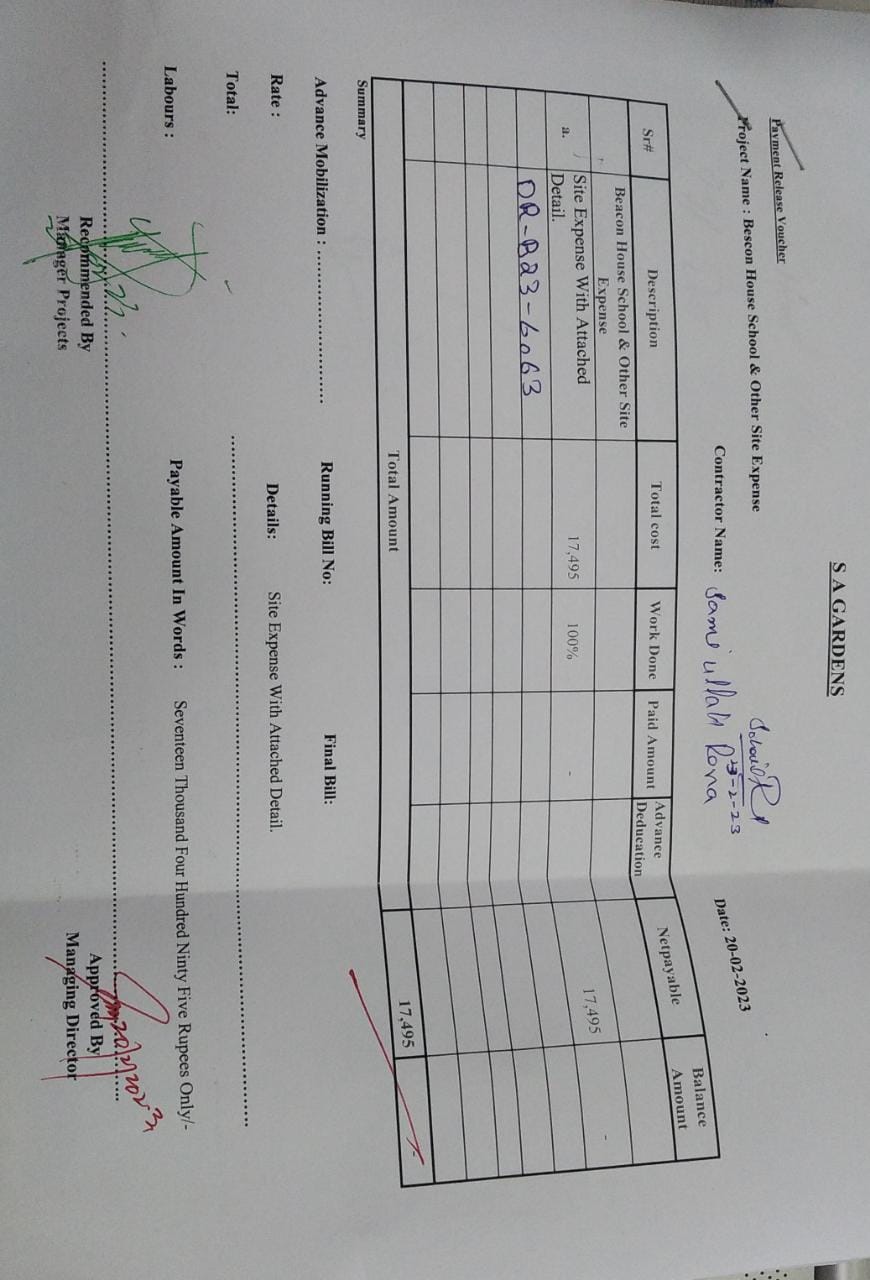 S A GARDENS
Payment Release Voucher
Project Name : Bescon House School & Other Site Expense
23-2-23
Contractor Name: Sami ullah Rana
Date: 20-02-2023
Sr# Description Total cost Work Done Paid Amount Advance Deducation Netpayable Balance Amount
Beacon House School & Other Site Expense
a. Site Expense With Attached Detail. 17,495 100% - 17,495 -
DR-B23-6063
Total Amount 17,495
Summary
Advance Mobilization : Running Bill No: Final Bill:
Rate : Details: Site Expense With Attached Detail.
Total:
Labours : Payable Amount In Words : Seventeen Thousand Four Hundred Ninty Five Rupees Only/-
Recommended By Approved By
Manager Projects Managing Director